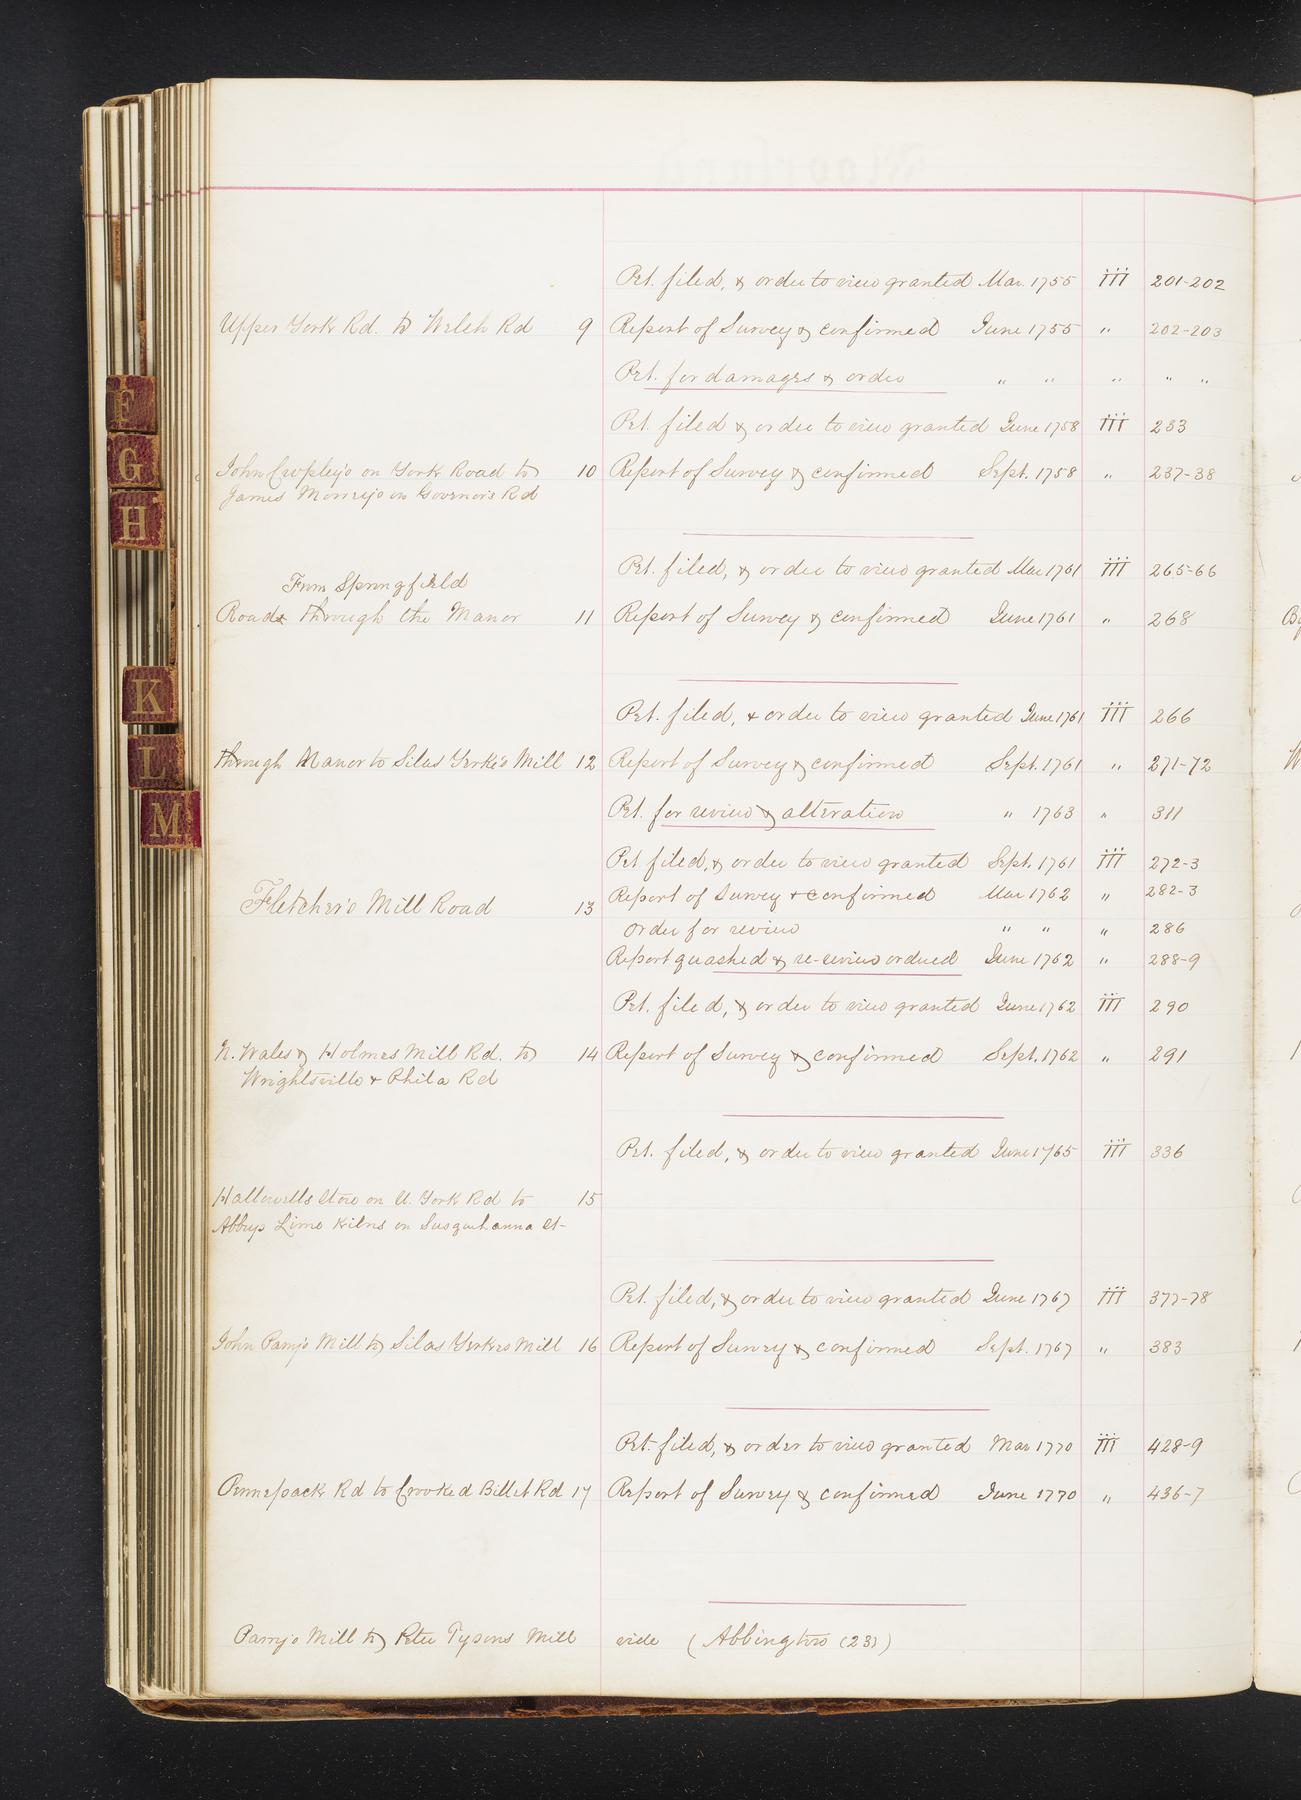 Pet. filed, & order to view granted Mar. 1755 III 201-202
Upper York Rd. to Welsh Rd 9 Report of Survey & confirmed June 1755 " 202-203
Pet. for damages & order " " " " "
Pet. filed & order to view granted June 1758 III 233
John Cropley's on York Road to 10 Report of Survey & confirmed Sept. 1758 " 237-38
James Morrey's on Governor's Rd
Pet. filed, & order to view granted Mar 1761 III 265-66
From Springfield
Road through the Manor 11 Report of Survey & confirmed June 1761 " 268
Pet. filed, & order to view granted June 1761 III 266
through Manor to Silas Yerke's Mill 12 Report of Survey & confirmed Sept. 1761 " 271-72
Pet. for review & alteration " 1763 " 311
Pet. filed, & order to view granted Sept. 1761 III 272-3
Report of Survey & confirmed Mar 1762 " 282-3
Fletcher's Mill Road 13
order for review " " " 286
Report quashed & re-review ordered June 1762 " 288-9
Pet. filed, & order to view granted June 1762 III 290
N. Wales & Holmes Mill Rd. to 14 Report of Survey & confirmed Sept. 1762 " 291
Wrightsville & Phila Rd
Pet. filed, & order to view granted June 1765 III 336
Hallowells Store on U. York Rd to 15
Lime Kilns on Susquehanna St-
Pet. filed, & order to view granted June 1767 III 377-78
John Parry's Mill to Silas Yerkes Mill 16 Report of Survey & confirmed Sept. 1767 " 383
Pet. filed, & order to view granted Mar 1770 III 428-9
Pennepack Rd to Crooked Billet Rd 17 Report of Survey & confirmed June 1770 " 436-7
Parry's Mill to Peter Tysons Mill vide (Abbington (23))
F
G
H
K
L
M